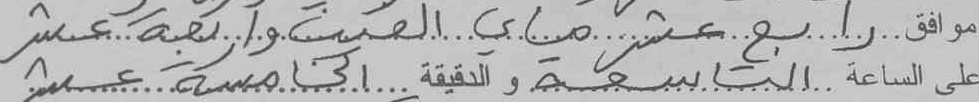 موافق رابع عشر ماي ألفين وأربعة عشر
على الساعة التاسعة و الدقيقة الخامسة عشر